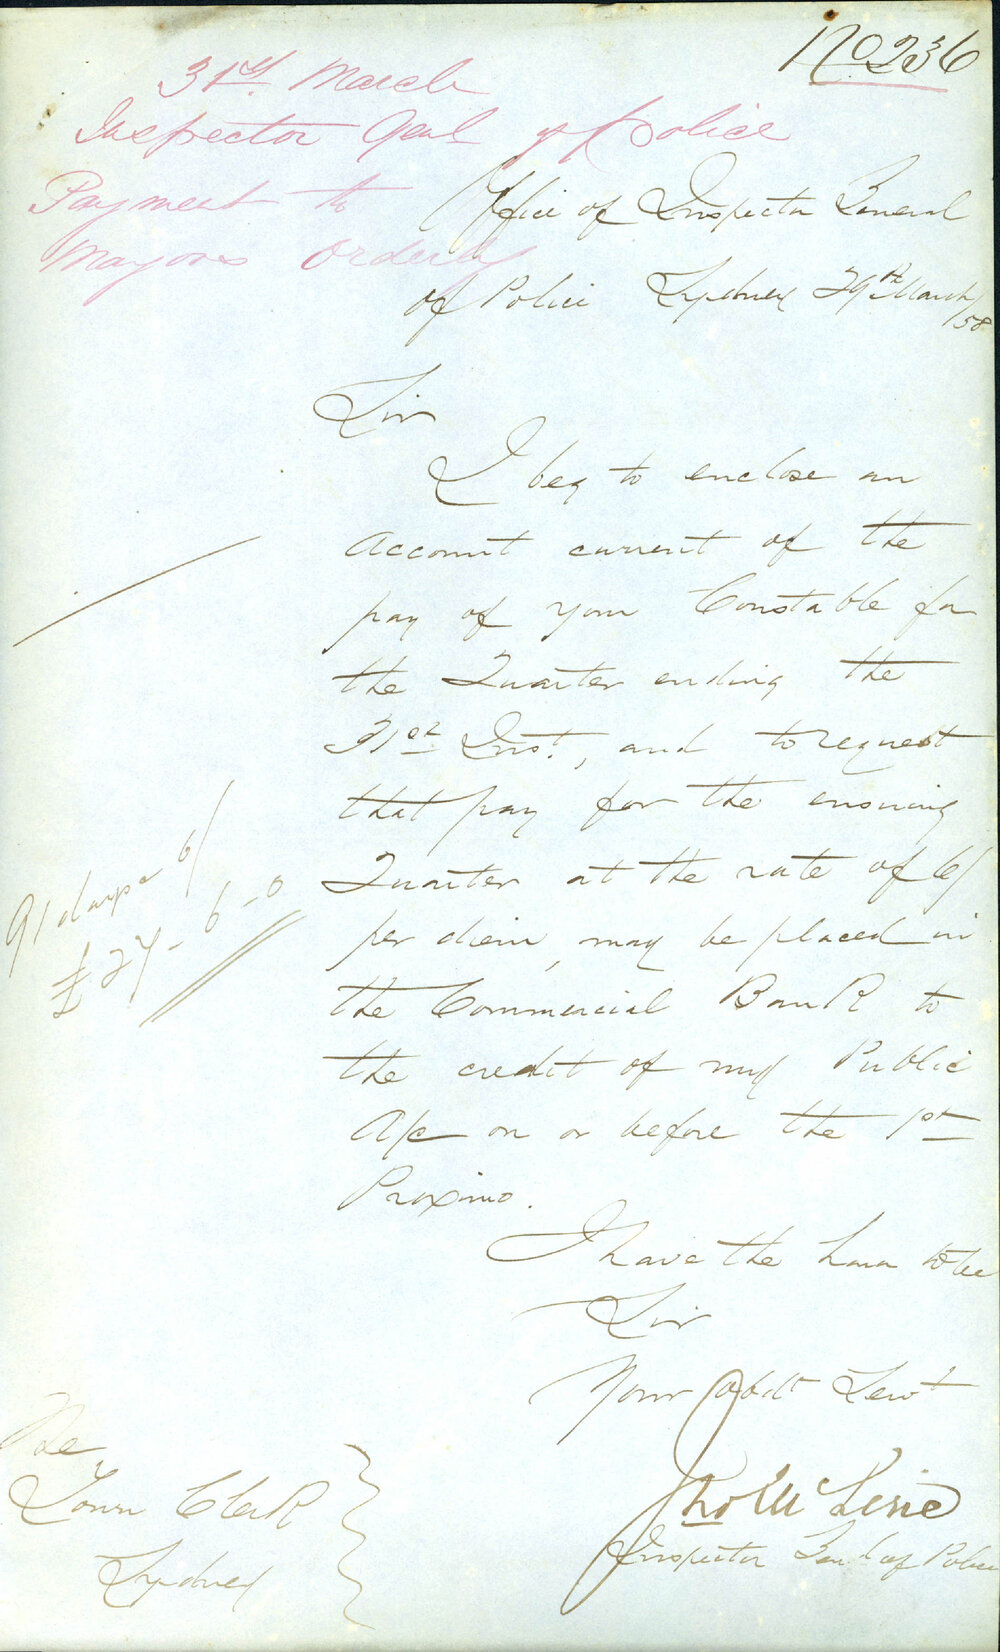 No 236
31st March
Inspector Genl of Police
Payment to
Mayors Orderly
Office of Inspector General
of Police Sydney 29th March
/58
Sir
I beg to enclose an
account current of the
pay of your Constable for
the Quarter ending the
31st Inst., and to request
that pay for the ensuing
Quarter at the rate of 6/
per diem, may be placed in
the Commercial Bank to
the credit of my Public
A/c on or before the 1st
Proximo.
91 days 6/
£27-6-0
I have the honor to be
Sir
Your Obdt Servt
Jno McLerie
Inspector Genl of Police
The
Town Clerk
Sydney